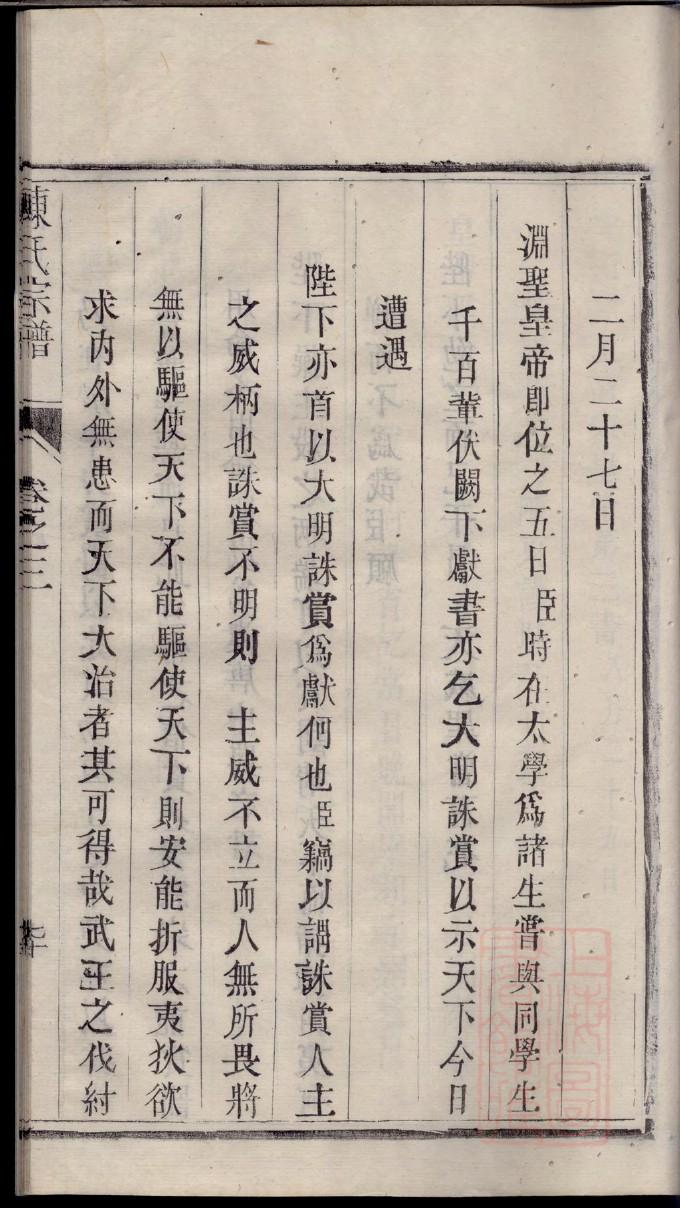 二月二十七日
淵聖皇帝即位之五日臣時在太學爲諸生嘗與同學生
千百輩伏闕下獻書亦乞大明誅賞以示天下今日
遭遇
陛下亦首以大明誅賞爲獻何也臣竊以謂誅賞人主
之威柄也誅賞不明則主威不立而人無所畏將
無以驅使天下不能驅使天下則安能折服夷狄欲
求內外無患而天下大治者其可得哉武王之伐紂
陳氏宗譜 卷之三